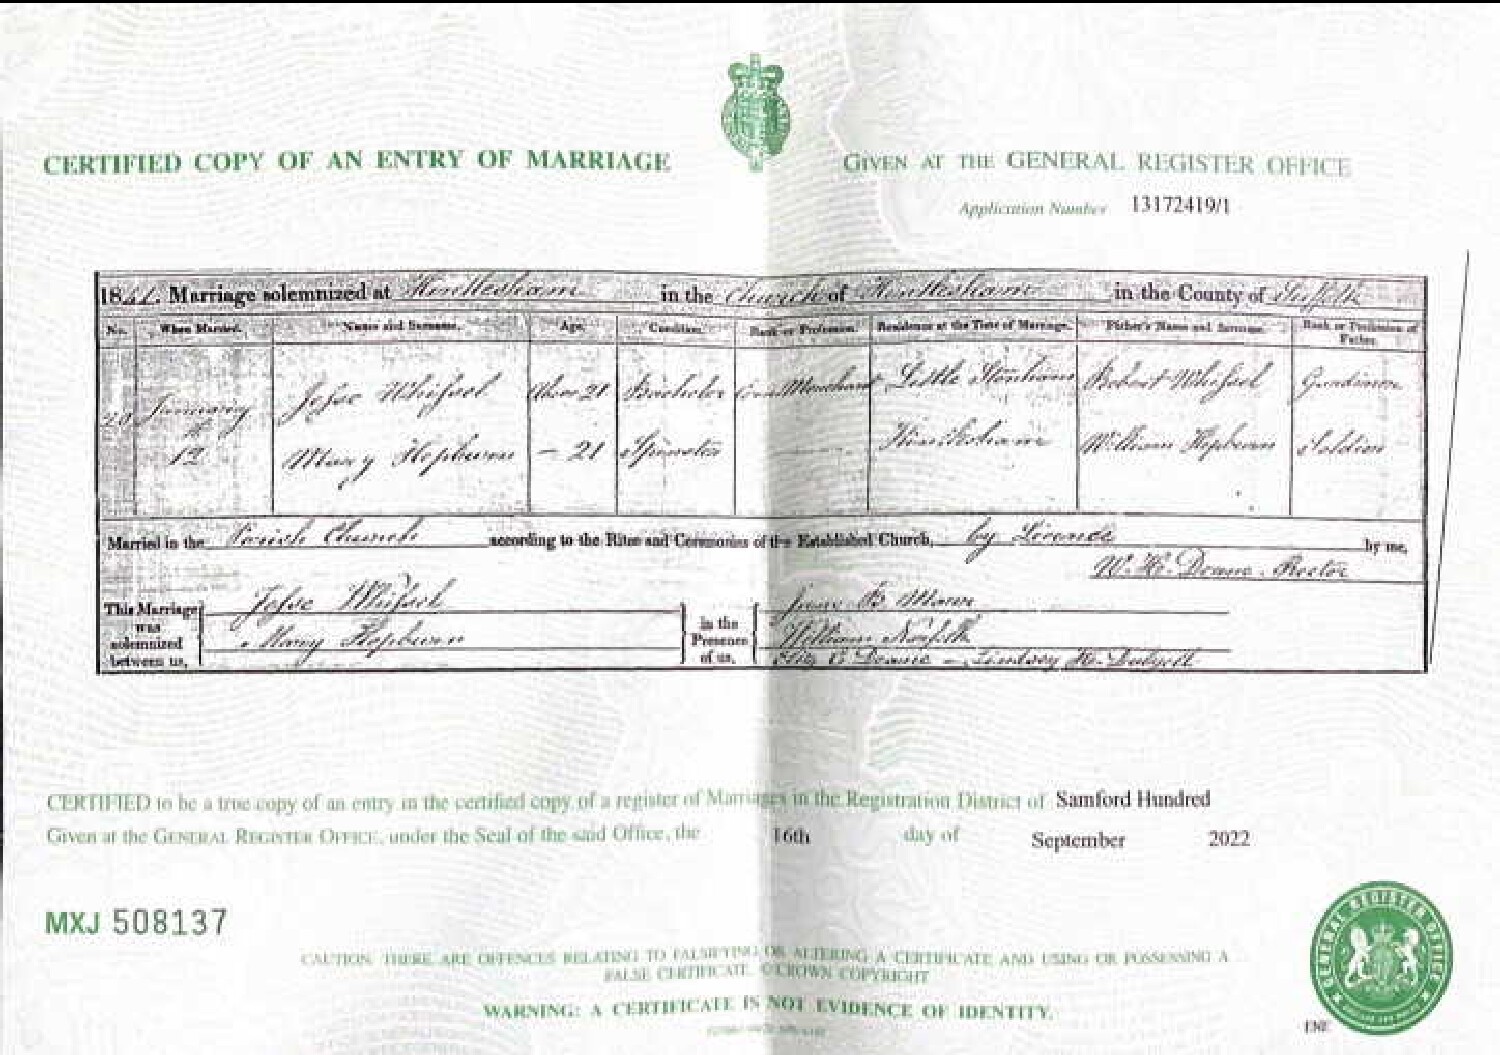 CERTIFIED COPY OF AN ENTRY OF MARRIAGE
GIVEN AT THE GENERAL REGISTER OFFICE
Application Number 13172419/1
Marriage solemnized at Hintlesham in the Church of Hintlesham in the County of Suffolk
No. When Married. Name and Surname. Age. Condition. Rank or Profession. Residence at the Time of Marriage. Father's Name and Surname. Rank or Profession of Father.
20 January 12 Above 21 Bachelor Corn Merchant Little Stonham Robert
Mary Hepburn – 21 Spinster Hintlesham William Hepburn Soldier
Married in the Parish Church according to the Rites and Ceremonies of the Established Church, by by me,
W. H. Deane. Rector
This Marriage was solemnized between us,
Mary Hepburn
in the Presence of us,
B. Mann
William Norfolk
Deane – Lindsey H.
CERTIFIED to be a true copy of an entry in the certified copy of a register of Marriages in the Registration District of Samford Hundred
Given at the GENERAL REGISTER OFFICE, under the Seal of the said Office, the 16th day of September 2022
MXJ 508137
CAUTION: THERE ARE OFFENCES RELATING TO FALSIFYING OR ALTERING A CERTIFICATE AND USING OR POSSESSING A
FALSE CERTIFICATE. ©CROWN COPYRIGHT
WARNING: A CERTIFICATE IS NOT EVIDENCE OF IDENTITY.
GENERAL REGISTER OFFICE